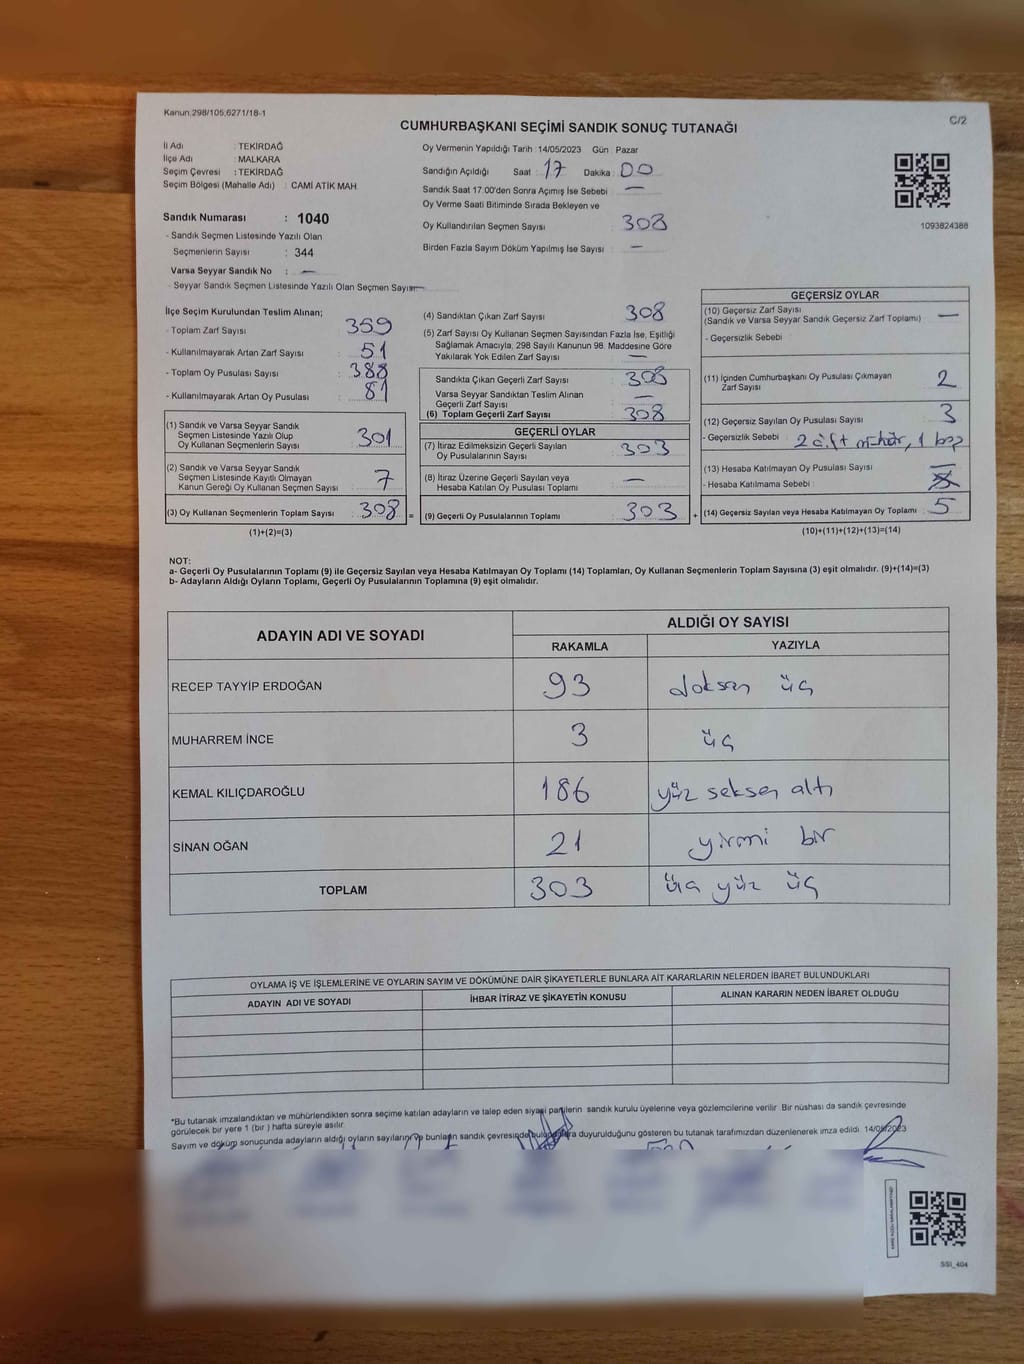 Kanun:298/105;6271/18-1
C/2
CUMHURBAŞKANI SEÇİMİ SANDIK SONUÇ TUTANAĞI
İl Adı : TEKİRDAĞ
İlçe Adı : MALKARA
Seçim Çevresi : TEKİRDAĞ
Seçim Bölgesi (Mahalle Adı) : CAMİ ATİK MAH.
Sandık Numarası : 1040
- Sandık Seçmen Listesinde Yazılı Olan
Seçmenlerin Sayısı : 344
Varsa Seyyar Sandık No : —
- Seyyar Sandık Seçmen Listesinde Yazılı Olan Seçmen Sayısı —
Oy Vermenin Yapıldığı Tarih :14/05/2023 Gün : Pazar
Sandığın Açıldığı Saat : 17 Dakika : 00
Sandık Saat 17.00'den Sonra Açımış İse Sebebi : —
Oy Verme Saati Bitiminde Sırada Bekleyen ve
Oy Kullandırılan Seçmen Sayısı : 308
Birden Fazla Sayım Döküm Yapılmış İse Sayısı : —
1093824388
İlçe Seçim Kurulundan Teslim Alınan;
- Toplam Zarf Sayısı : 359
- Kullanılmayarak Artan Zarf Sayısı : 51
- Toplam Oy Pusulası Sayısı : 388
- Kullanılmayarak Artan Oy Pusulası : 81
(1) Sandık ve Varsa Seyyar Sandık
Seçmen Listesinde Yazılı Olup
Oy Kullanan Seçmenlerin Sayısı : 301
(2) Sandık ve Varsa Seyyar Sandık
Seçmen Listesinde Kayıtlı Olmayan
Kanun Gereği Oy Kullanan Seçmen Sayısı : 7
(3) Oy Kullanan Seçmenlerin Toplam Sayısı : 308 =
(1)+(2)=(3)
(4) Sandıktan Çıkan Zarf Sayısı : 308
(5) Zarf Sayısı Oy Kullanan Seçmen Sayısından Fazla İse, Eşitliği
Sağlamak Amacıyla, 298 Sayılı Kanunun 98. Maddesine Göre
Yakılarak Yok Edilen Zarf Sayısı : —
Sandıkta Çıkan Geçerli Zarf Sayısı : 308
Varsa Seyyar Sandıktan Teslim Alınan
Geçerli Zarf Sayısı : —
(6) Toplam Geçerli Zarf Sayısı : 308
GEÇERLİ OYLAR
(7) İtiraz Edilmeksizin Geçerli Sayılan
Oy Pusulalarının Sayısı : 303
(8) İtiraz Üzerine Geçerli Sayılan veya
Hesaba Katılan Oy Pusulası Toplamı : —
(9) Geçerli Oy Pusulalarının Toplamı : 303 +
GEÇERSİZ OYLAR
(10) Geçersiz Zarf Sayısı
(Sandık ve Varsa Seyyar Sandık Geçersiz Zarf Toplamı) : —
- Geçersizlik Sebebi :
(11) İçinden Cumhurbaşkanı Oy Pusulası Çıkmayan
Zarf Sayısı : 2
(12) Geçersiz Sayılan Oy Pusulası Sayısı : 3
- Geçersizlik Sebebi : 2 çift mühür, 1 boş
(13) Hesaba Katılmayan Oy Pusulası Sayısı : —
- Hesaba Katılmama Sebebi :
(14) Geçersiz Sayılan veya Hesaba Katılmayan Oy Toplamı : 5
(10)+(11)+(12)+(13)=(14)
NOT:
a- Geçerli Oy Pusulalarının Toplamı (9) ile Geçersiz Sayılan veya Hesaba Katılmayan Oy Toplamı (14) Toplamları, Oy Kullanan Seçmenlerin Toplam Sayısına (3) eşit olmalıdır. (9)+(14)=(3)
b- Adayların Aldığı Oyların Toplamı, Geçerli Oy Pusulalarının Toplamına (9) eşit olmalıdır.
ADAYIN ADI VE SOYADI
ALDIĞI OY SAYISI
RAKAMLA YAZIYLA
RECEP TAYYİP ERDOĞAN 93 doksan üç
MUHARREM İNCE 3 üç
KEMAL KILIÇDAROĞLU 186 yüz seksen altı
SİNAN OĞAN 21 yirmi bir
TOPLAM 303 üç yüz üç
OYLAMA İŞ VE İŞLEMLERİNE VE OYLARIN SAYIM VE DÖKÜMÜNE DAİR ŞİKAYETLERLE BUNLARA AİT KARARLARIN NELERDEN İBARET BULUNDUKLARI
ADAYIN ADI VE SOYADI İHBAR İTİRAZ VE ŞİKAYETİN KONUSU ALINAN KARARIN NEDEN İBARET OLDUĞU
*Bu tutanak imzalandıktan ve mühürlendikten sonra seçime katılan adayların ve talep eden siyasi partilerin sandık kurulu üyelerine veya gözlemcilerine verilir. Bir nüshası da sandık çevresinde
görülecek bir yere 1 (bir ) hafta süreyle asılır.
Sayım ve döküm sonucunda adayların aldığı oyların sayılarını ve bunların sandık çevresinde bulunanlara duyurulduğunu gösteren bu tutanak tarafımızdan düzenlenerek imza edildi. 14/05/2023
SSI_404